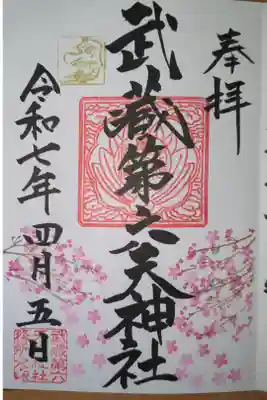 奉拝
武蔵第六天神社
令和七年四月五日